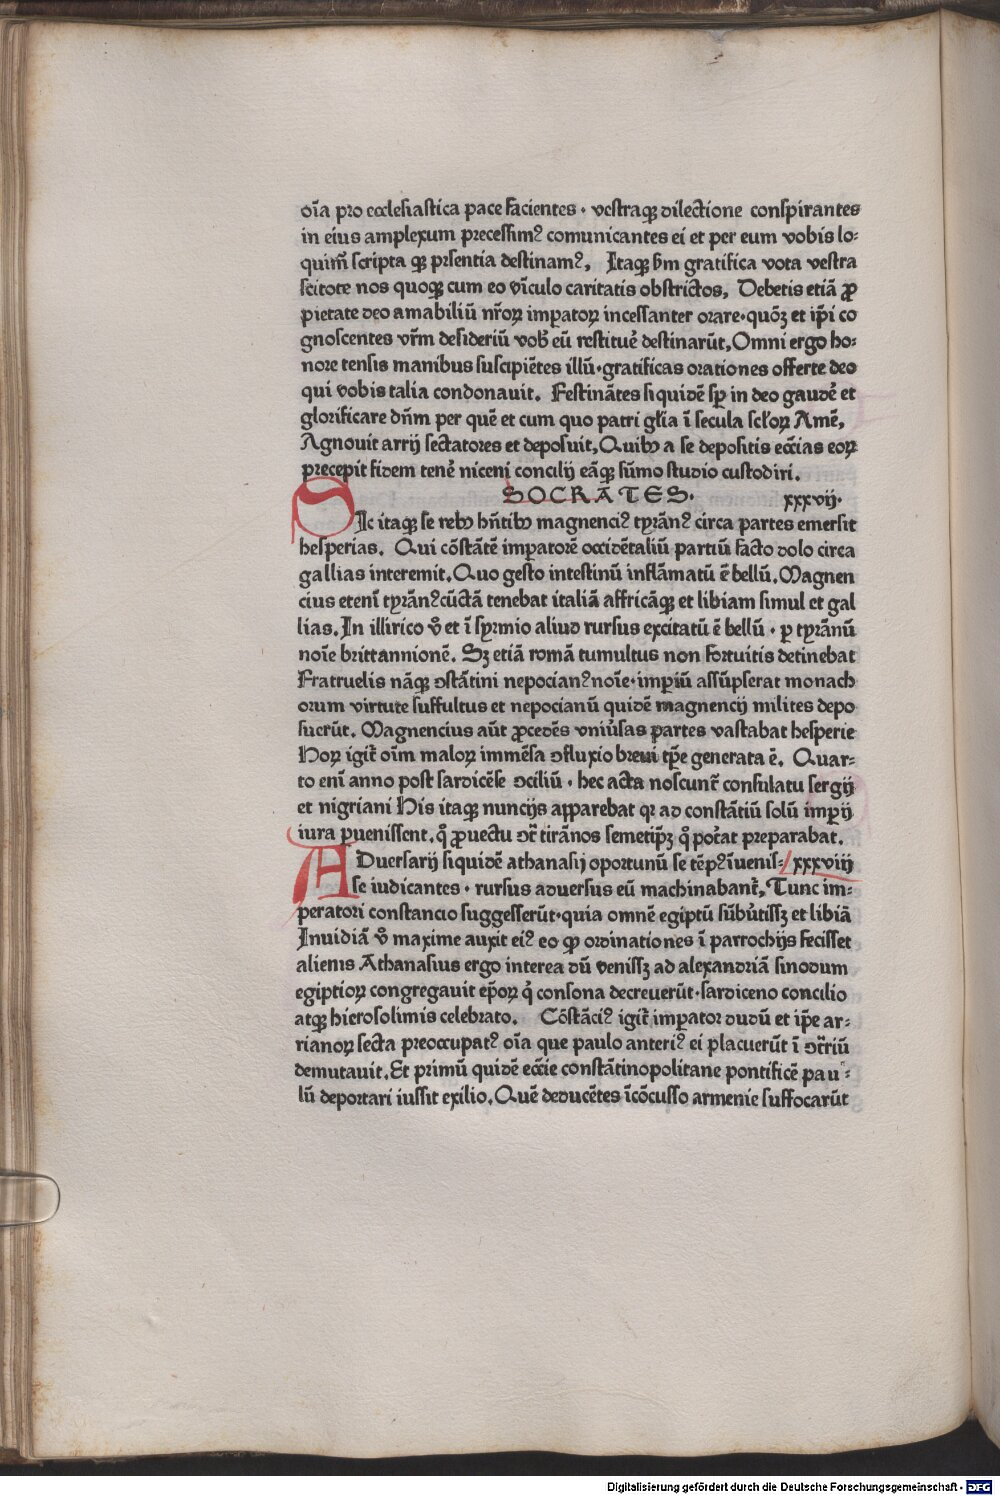 oĩa pro ecclesiastica pace facientes · vestraqȝ dilectione conspirantes
in eius amplexum precessimꝰ comunicantes ei et per eum vobis lo⸗
quim̃ scripta qȝ pr̃sentia destinamꝰ, Itaqȝ bm̃ gratifica vota vestra
scitote nos quoqȝ cum eo ṽiculo caritatis obstrictos, Debetis etiã ꝓ
pietate deo amabiliũ nr̃oꝝ imꝑatoꝝ incessanter orare·quõȝ et ip̃i co
gnoscentes vr̃m desideriũ vob̾ eũ restitue᷑ destinarũt, Omni ergo ho⸗
nore tensis manibus suscipiẽtes illũ·gratificas orationes offerte deo
qui vobis talia condonauit, Festinãtes siquidẽ sꝑ in deo gaude᷑ et
glorificare dñm per quẽ et cum quo patri gl̃ia ĩ secula sctoꝝ Amẽ,
Agnouit arrij sectatores et deposuit, Quibꝰ a se depositis eccĩas eoꝝ
precepit fidem tene᷑ niceni concilij eãqȝ sũmo studio custodiri.
SOCRATES. xxxvij·
SIc itaqȝ se rebꝰ hñtibꝰ magnenciꝰ tyrãnꝰ circa partes emersit
hesperias. Qui cõstãtẽ imperatorẽ occidẽtaliũ partiũ facto dolo circa
gallias interemit, Quo gesto intestinũ inflãmatũ ẽ bellũ, Magnen
cius etenĩ tyrãnꝰ cũctã tenebat italiã affricãqȝ et libiam simul et gal
lias. In illirico v̾o et ĩ syrmio aliud rursus excitatũ ẽ bellũ · ꝑ tyrãnũ
noĩe brittannionẽ. Sȝ etiã romã tumultus non fortuitis detinebat
Fratruelis nãqȝ ꝯstãtini nepocianꝰ noĩe·imꝑiũ assũpserat monach
orum virtute suffultus et nepocianũ quidẽ magnencij milites depo
suerũt, Magnencius aũt ꝓcedẽs vniu̾sas partes vastabat hesperie
Hoꝝ igit᷑ oĩm maloꝝ immẽsa ꝯfluxio breui tp̃e generata ẽ, Quar⸗
to enĩ anno post sardicẽse ꝯciliũ · hec acta noscunt᷑ consulatu sergij
et nigriani His itaqȝ nuncijs apparebat qꝛ ad constãtiũ solũ imꝑij
iura ꝑuenissent, q̾ ꝓuectu ꝯt᷑ tirãnos semetip̃ȝ q̾ pot̾at preparabat,
ADuersarij siquidẽ athanasij oportunũ se tẽpꝰ ĩuenis⸗ xxxviij
se iudicantes · rursus aduersus eũ machinabant᷑, Tunc im⸗
peratori constancio suggesserũt·quia omnẽ egiptũ sũbu̾tissȝ et libiã
Inuidiã v̾o maxime auxit eiꝰ eo ꝙ ordinationes ĩ parrochijs fecisset
alienis Athanasius ergo interea dũ venissȝ ad alexandriã sinodum
egiptioꝝ congregauit ep̃oꝝ q̾ consona decreuerũt·sardiceno concilio
atqȝ hierosolimis celebrato, Cõstãciꝰ igit᷑ imꝑator dudũ et ip̃e ar⸗
rianoꝝ secta preoccupatꝰ oĩa que paulo anteriꝰ ei placuerũt ĩ ꝯt᷑riũ
demutauit, Et primũ quidẽ eccĩe constãtinopolitane pontificẽ pau⸗
lũ deportari iussit exilio, Quẽ deducẽtes ĩcõcusso armenie suffocarũt
Digitalisierung gefördert durch die Deutsche Forschungsgemeinschaft - DFG